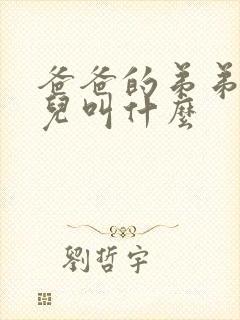 爸爸的弟弟
兒叫什麼
劉哲宇